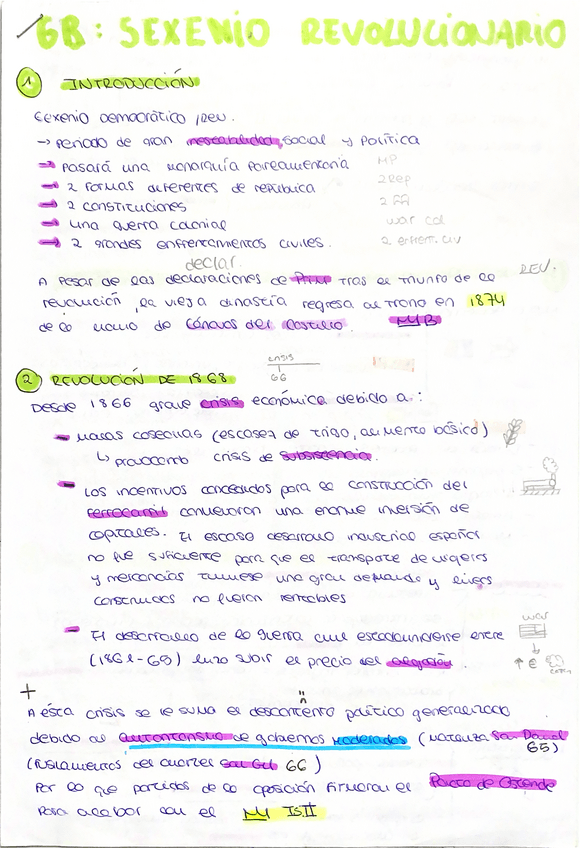 6B: SEXENIO REVOLUCIONARIO
1 INTRODUCCIÓN
Sexenio Democrático / Rev.
→ Periodo de gran inestabilidad, social y política
→ Pasará una monarquía parlamentaria MP
→ 2 formas diferentes de república 2 Rep
→ 2 constituciones
→ una guerra colonial war col
→ 2 grandes enfrentamientos civiles. 2 enfrent. civ
declar.
A pesar de las declaraciones de Prim tras el triunfo de la REV.
revolución, la vieja dinastía regresa al trono en 1874
de la mano de Cánovas del Castillo.
crisis
66
2 REVOLUCIÓN DE 1868
Desde 1866 grave crisis económica debido a:
- Malas cosechas (escasez de trigo, alimento básico)
↳ provocando crisis de subsistencia.
- Los incentivos concedidos para la construcción del
ferrocarril conllevaron una enorme inversión de
capitales. El escaso desarrollo industrial español
no fue suficiente para que el transporte de viajeros
y mercancías tuviese una gran demanda y líneas
construidas no fueron rentables
- El desarrollo de la guerra civil estadounidense entre war
(1861-65) hizo subir el precio del algodón. ↑ €
+
A ésta crisis se le suma el descontento político generalizado
debido al autoritarismo de gobiernos moderados (Matanza San Daniel
65)
(fusilamientos del cuartel San Gil 66)
Por lo que partidos de la oposición firmaron el Pacto de Ostende
para acabar con el Is.II